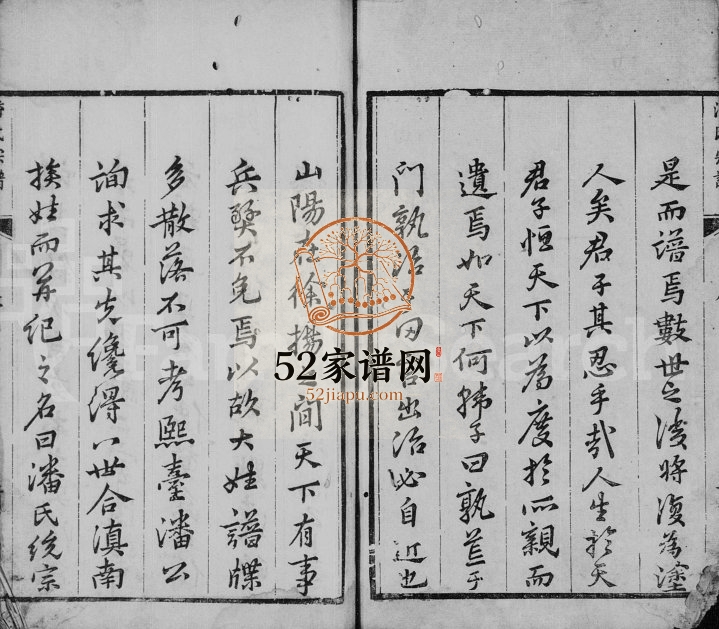 是而譜焉數世之後將復為塗
人矣君子其忍乎哉人生於天
君子恒天下以為度於所親而
遺焉如天下何韩子曰孰荒于
門孰治于田言出治必自近也
山陽在徐揚之間天下有事
兵燹不免焉以故大姓譜牒
多散落不可考熙臺潘公
詢求其先纔得八世合滇南
族姓而并紀之名曰潘氏統宗
52家谱网
52jiapu.com